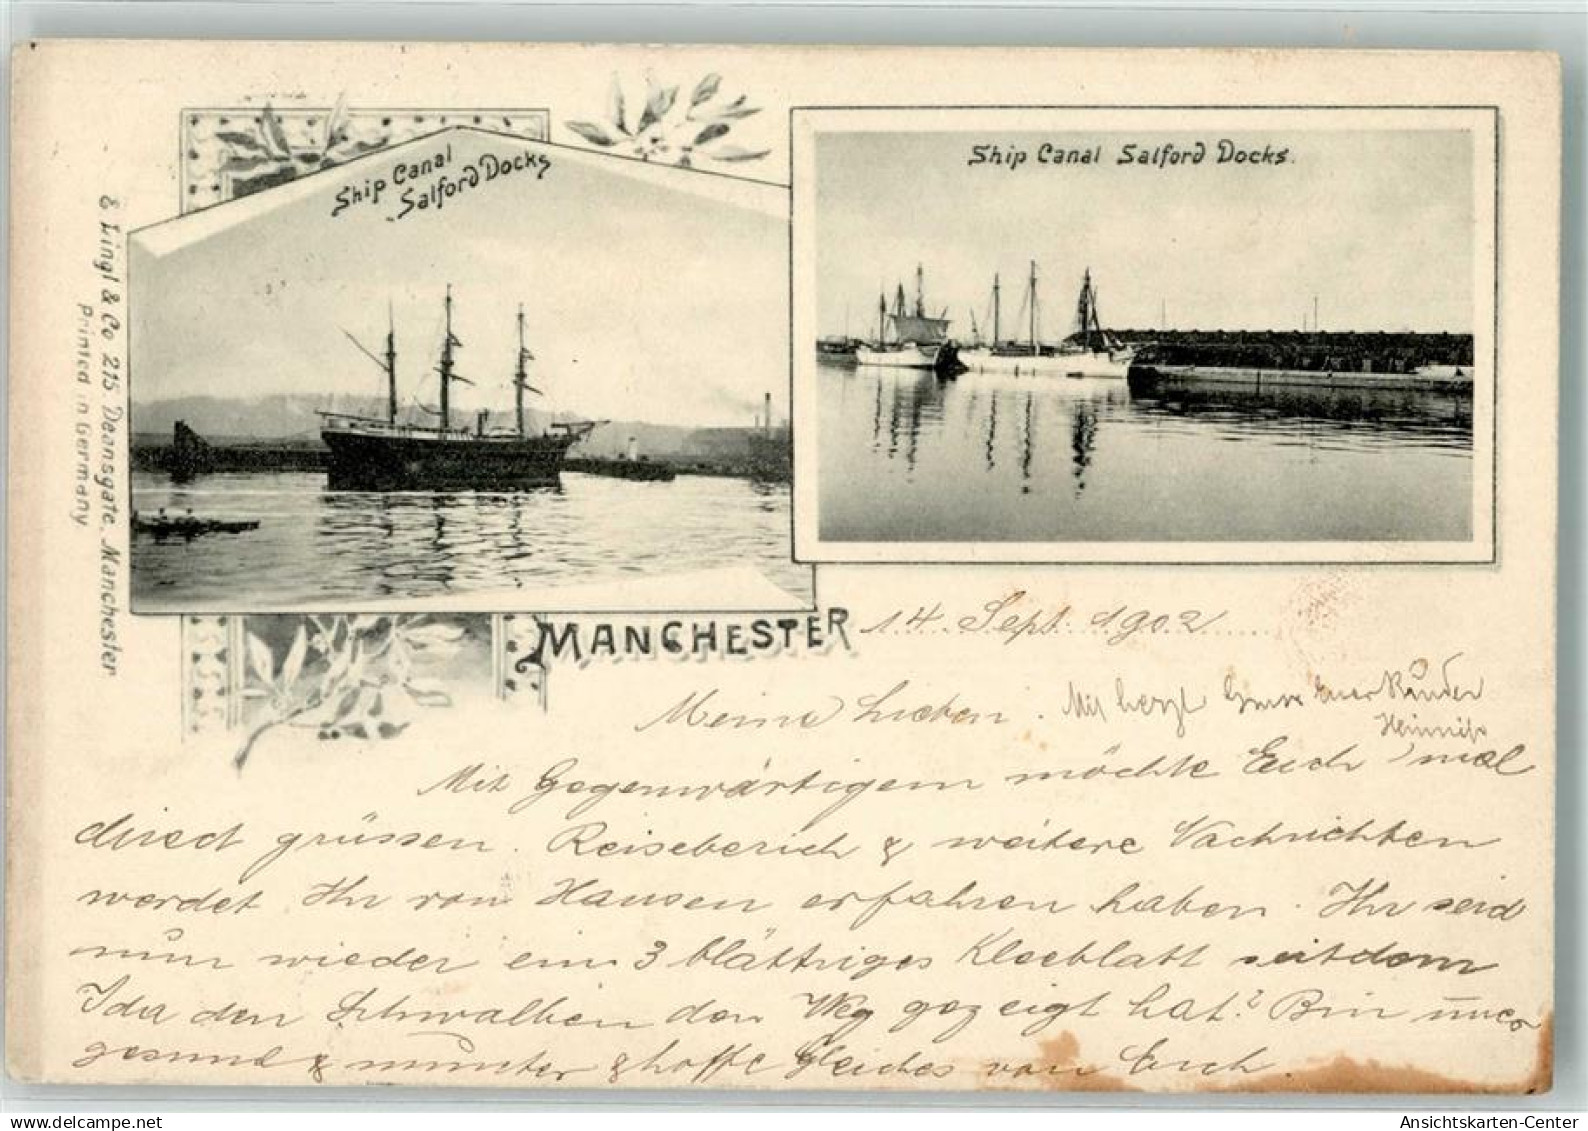 Ship Canal
Salford Docks
Ship Canal Salford Docks.
& Lingl & Co 215. Deansgate. Manchester
Printed in Germany
MANCHESTER 14 Sept. 1902
Meine Lieben.
Mit herzl Euer
Mit Gegenwärtigem möchte Euch mal
direct grüssen. Reiseberich & weitere Nachrichten
werdet Ihr von Hausen erfahren haben. Ihr seid
nun wieder ein 3 blättriges Kleeblatt seitdem
Ida den Schwalben den Weg gezeigt hat? Bin
gesund & munter & hoffe Gleiches von Euch.
Ansichtskarten-Center